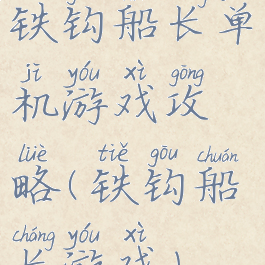 铁钩船长单
jī yóu xì gōng
机游戏攻
lüè tiě gōu chuán
略(铁钩船
cháng yóu xì
长游戏)